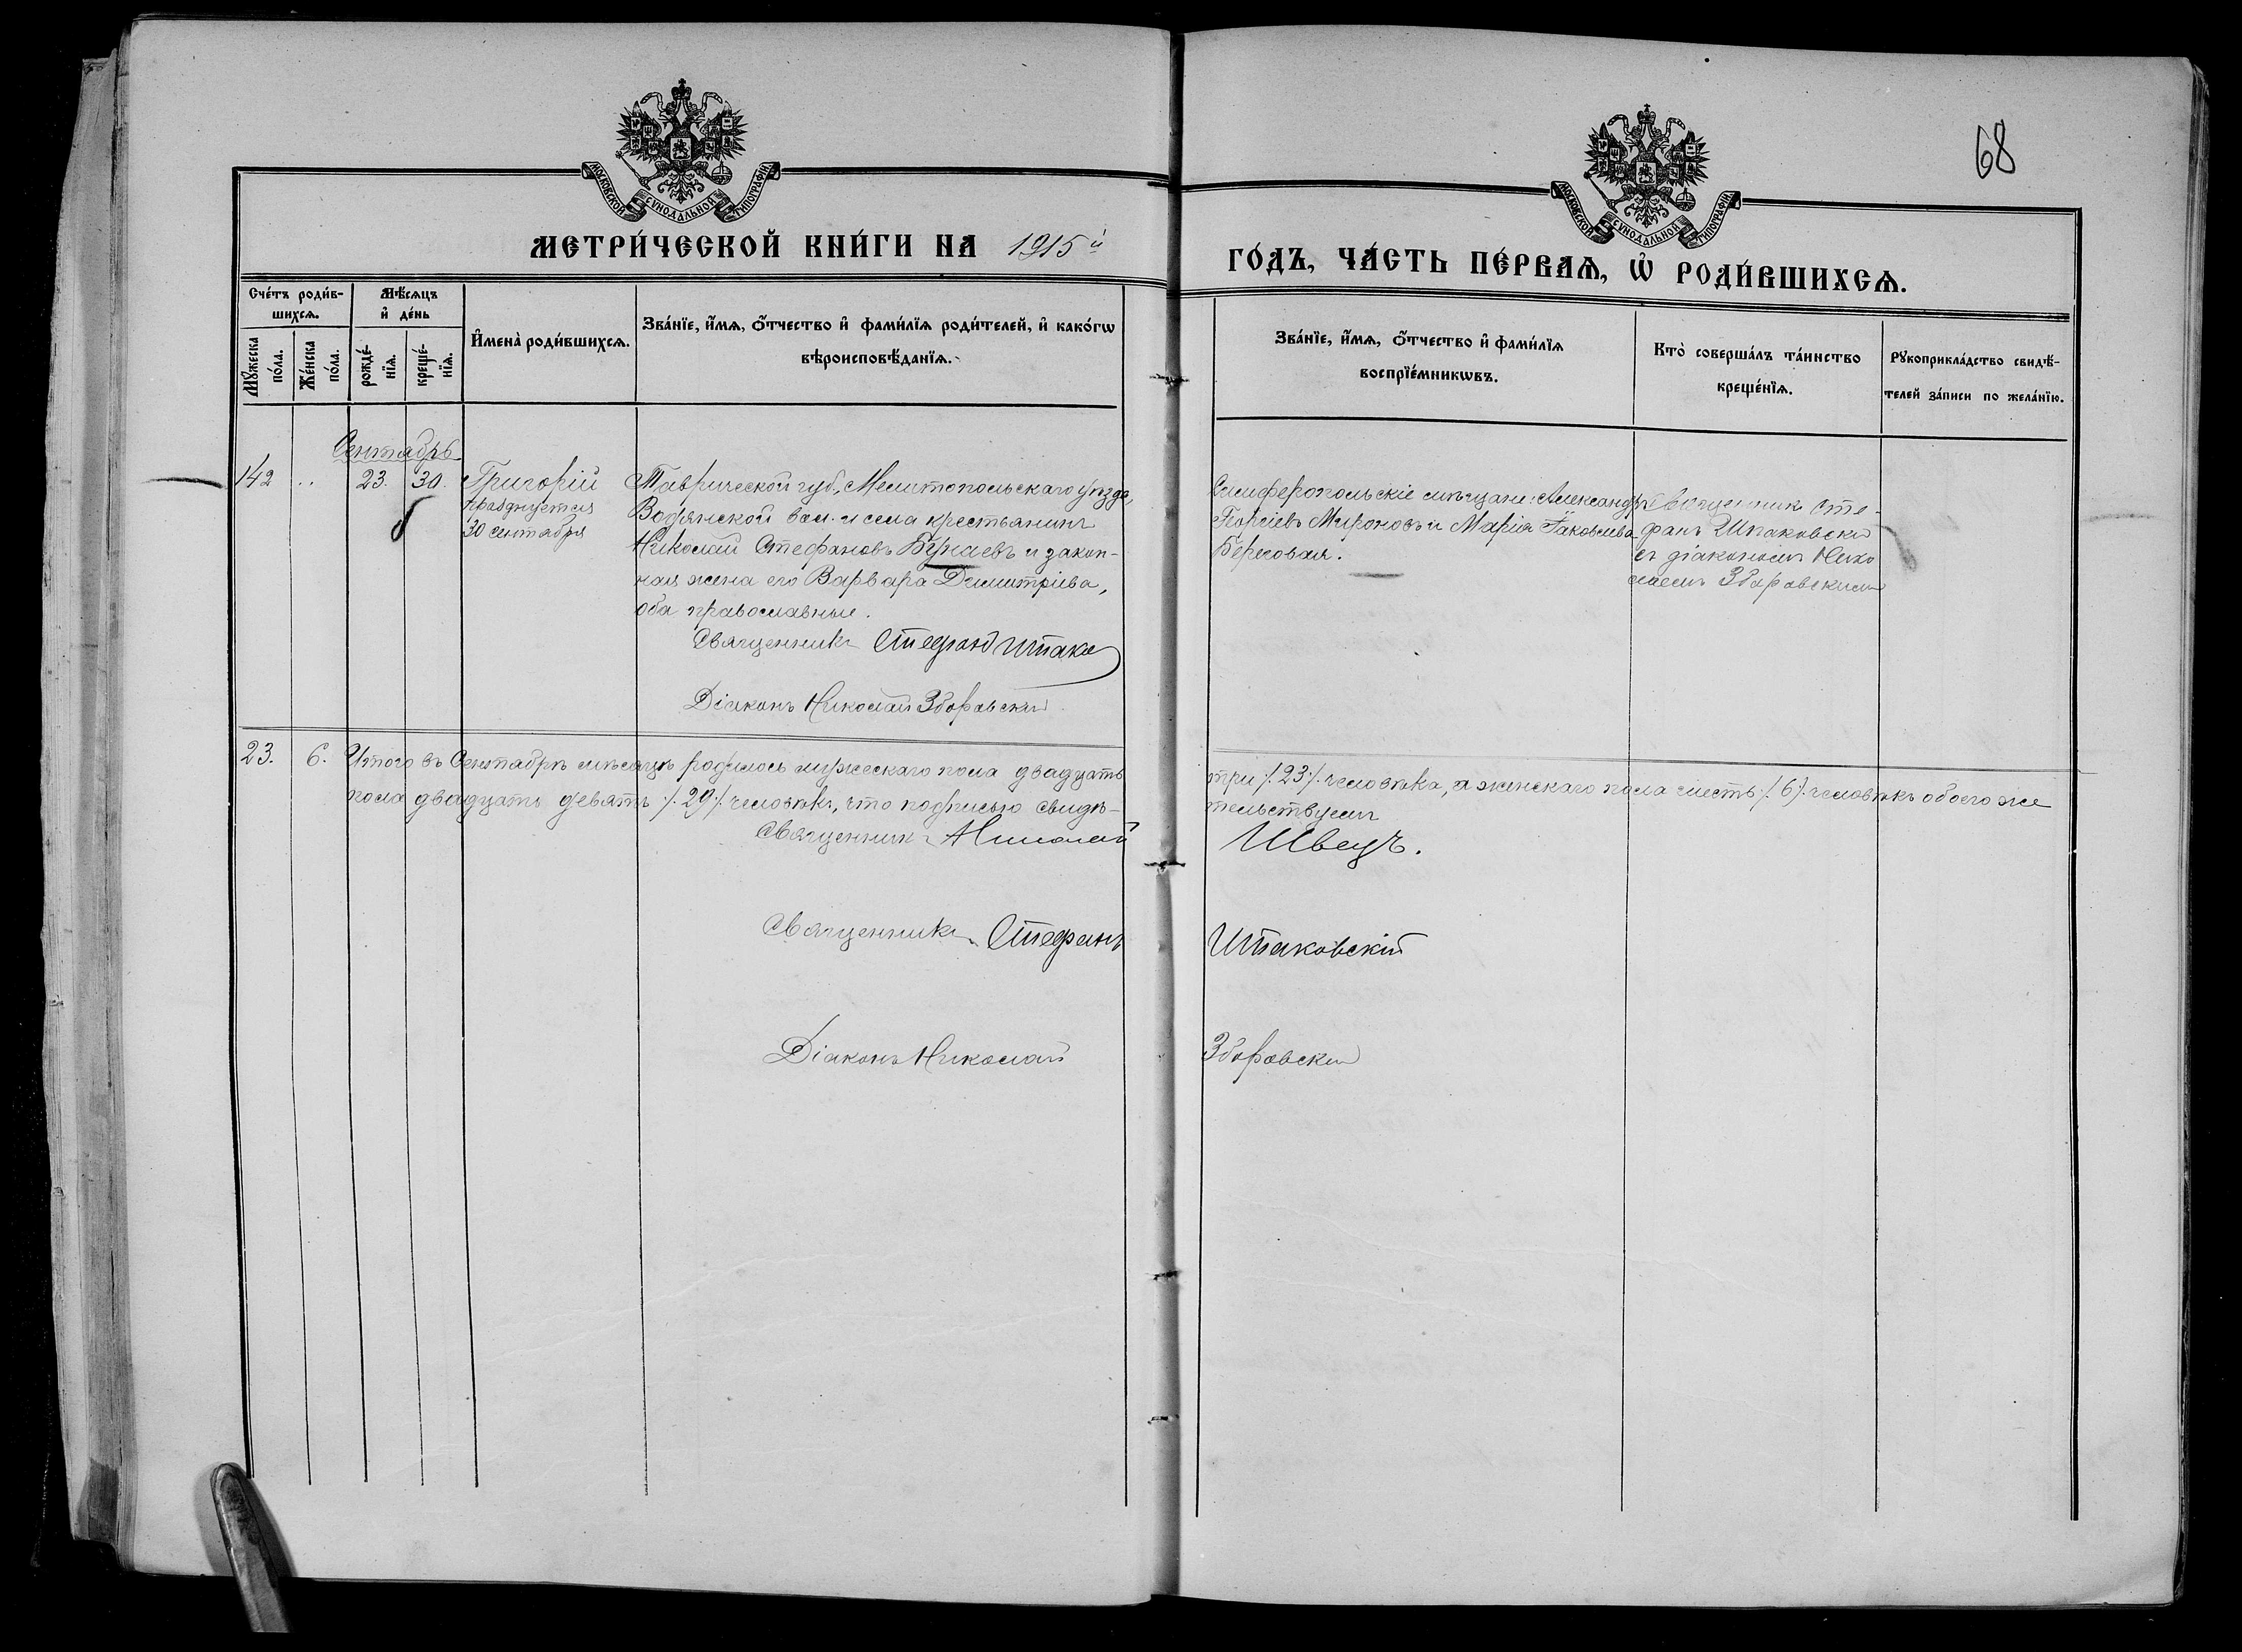 68
МОСКОВСКОЙ СѴНОДАЛЬНОЙ ТИПОГРАФІИ
МОСКОВСКОЙ СѴНОДАЛЬНОЙ ТИПОГРАФІИ
МЕТРИ́ЧЕСКОЙ КНИ́ГИ НА 1915й
ГО́ДЪ, ЧА́СТЬ ПЕ́РВАѦ, Ѡ҆ РОДИ́ВШИХСѦ.
Сче́тъ роди́в-
шихсѧ.
Мꙋ́жеска
по́ла.
Же́нска
по́ла.
Мѣ́сѧцъ
и҆ де́нь
рожде́-
нїѧ.
креще́-
нїѧ.
И҆мена̀ роди́вшихсѧ.
Зва́нїе, и҆́мѧ, ѻ҆́тчество и҆ фами́лїѧ роди́телей, и҆ како́гѡ
вѣроисповѣ́данїѧ.
Зва́нїе, и҆́мѧ, ѻ҆́тчество и҆ фами́лїѧ
воспрїе́мникѡвъ.
Кто̀ соверша́лъ та́инство
креще́нїѧ.
Рꙋкоприкла́дство свидѣ́-
телей за́писи по жела́нїю.
Сентябрь
142 .. 23. 30.
Григорій
празднуется
30 сентября
Таврической губ., Мелитопольскаго уѣзда,
Водянской вол. и села крестьянинъ
Николай Стефановъ Бунаевъ и закон-
ная жена его Варвара Димитріева,
оба православные.
Священникъ Стефанъ Шпако
Діаконъ Николай Зборовскій
Симферопольскіе мѣщане: Александръ
Георгіевъ Мироновъ и Марія Іаковлева
Береговая.
Священникъ Сте-
фанъ Шпаковскій
съ діакономъ Нико
лаемъ Зборовскимъ
23. 6. Итого въ Сентябрѣ мѣсяцѣ родилось мужескаго пола двадцать
три /.23./. человѣка, а женскаго пола шесть /.6/. человѣкъ обоего же
пола двадцать девять /.29./. человѣкъ, что подписью свидѣ-
тельствуемъ
Священникъ Николай Швецъ.
Священникъ Стефанъ Шпаковскій
Діаконъ Николай Зборовскій